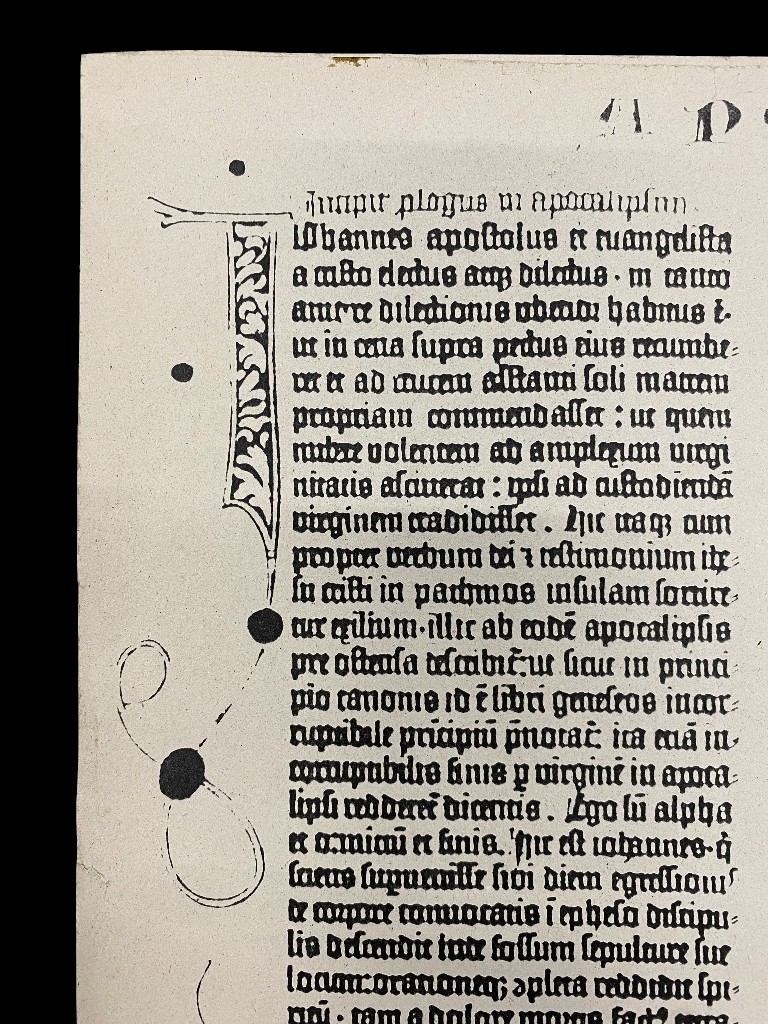 A P
Incipit plogus in apocalipsim
Iohannes apostolus et euangelista
a cristo electus atq; dilectus · in tanto
amore dilectionis uberior habitus ē·
ut in cena supra pectus eius recumbe=
ret et ad crucem astanti soli matrem
propriam commendasset : ut quem
nubere volentem ad amplexum virgi
nitatis asciuerat : ipsi ad custodiendā
virginem tradidisset . Hic itaq; cum
propter verbum dei ⁊ testimonium ihe=
su cristi in pathmos insulam sortire=
tur exilium · illic ab eodē apocalipsis
pre ostensa describit᷑: ut sicut in princi
pio canonis id ē libri geneseos incor=
ruptibile prīcipiū p̄notat᷑: ita etiā in=
corruptibilis finis ꝑ virginē in apoca=
lipsi redderet᷑ dicentis . Ego sū alpha
et o: iniciū et finis. Hic est iohannes · q̄
sciens supuenisse sibi diem egressionis
de corpore conuocatis ī epheso discipu=
lis descendit in defossum sepulture sue
locum: orationeq; ꝯpleta reddidit spi=
ritū · tam a dolore mortis fact᷒ extra=